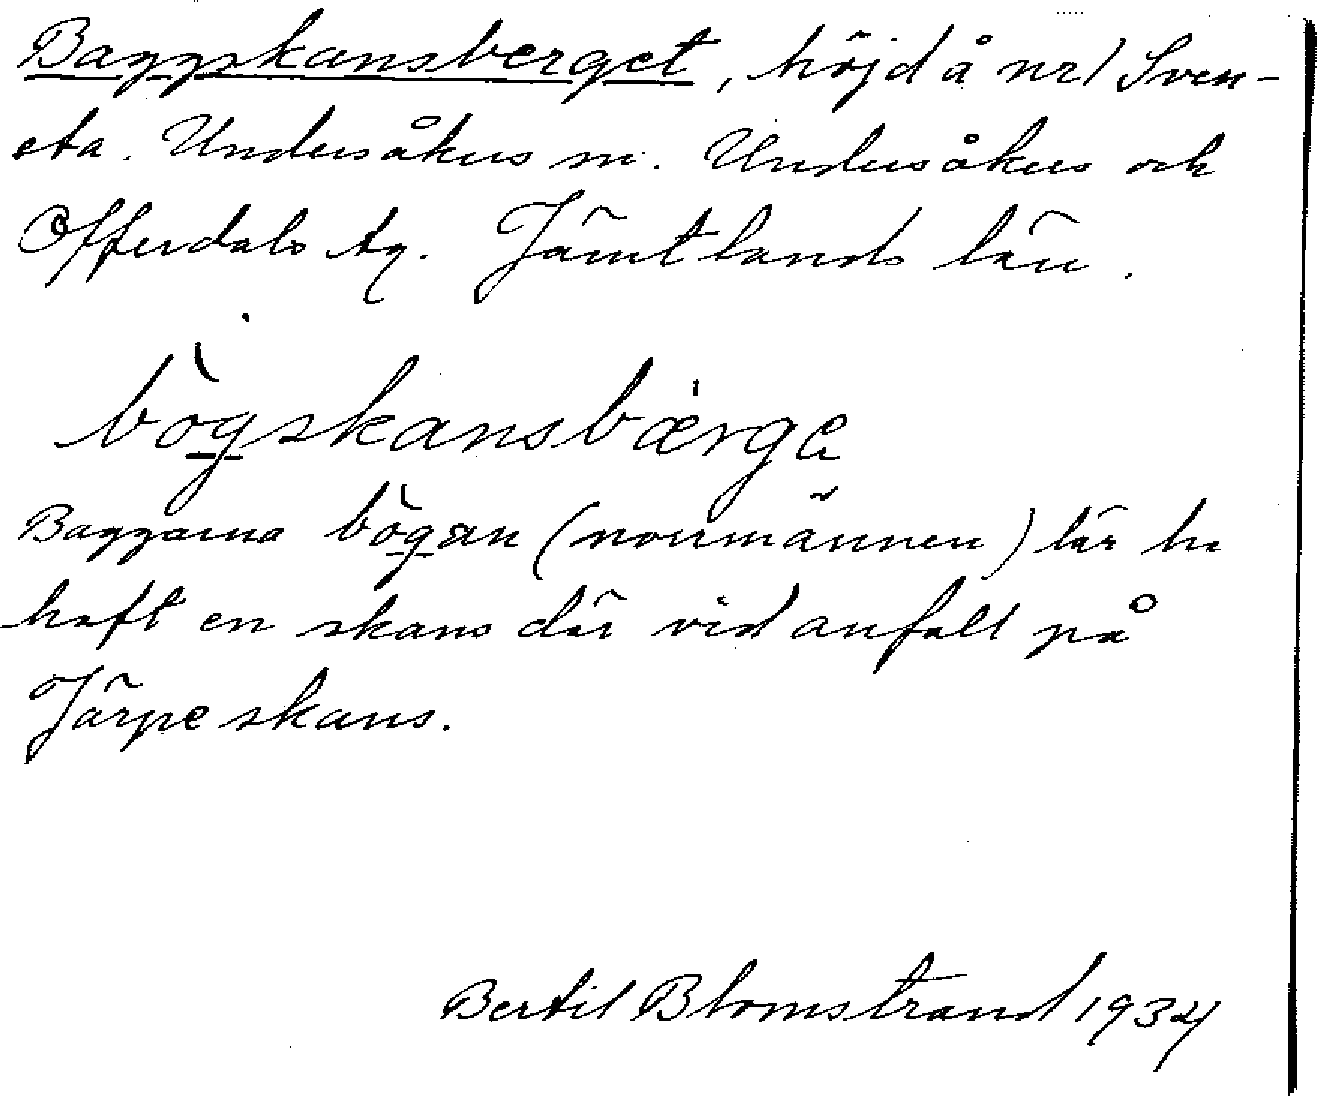 Baggskansberget, höjd å nr 1 Sven-
sta. Undersåkers sn. Undersåkers och
Offerdals tg. Jämtlands län.
bògskansbærga
Baggarna bògan (norrmännen) lär ha
haft en skans där vid anfall på
Järpe skans.
Bertil Blomstrand 1934